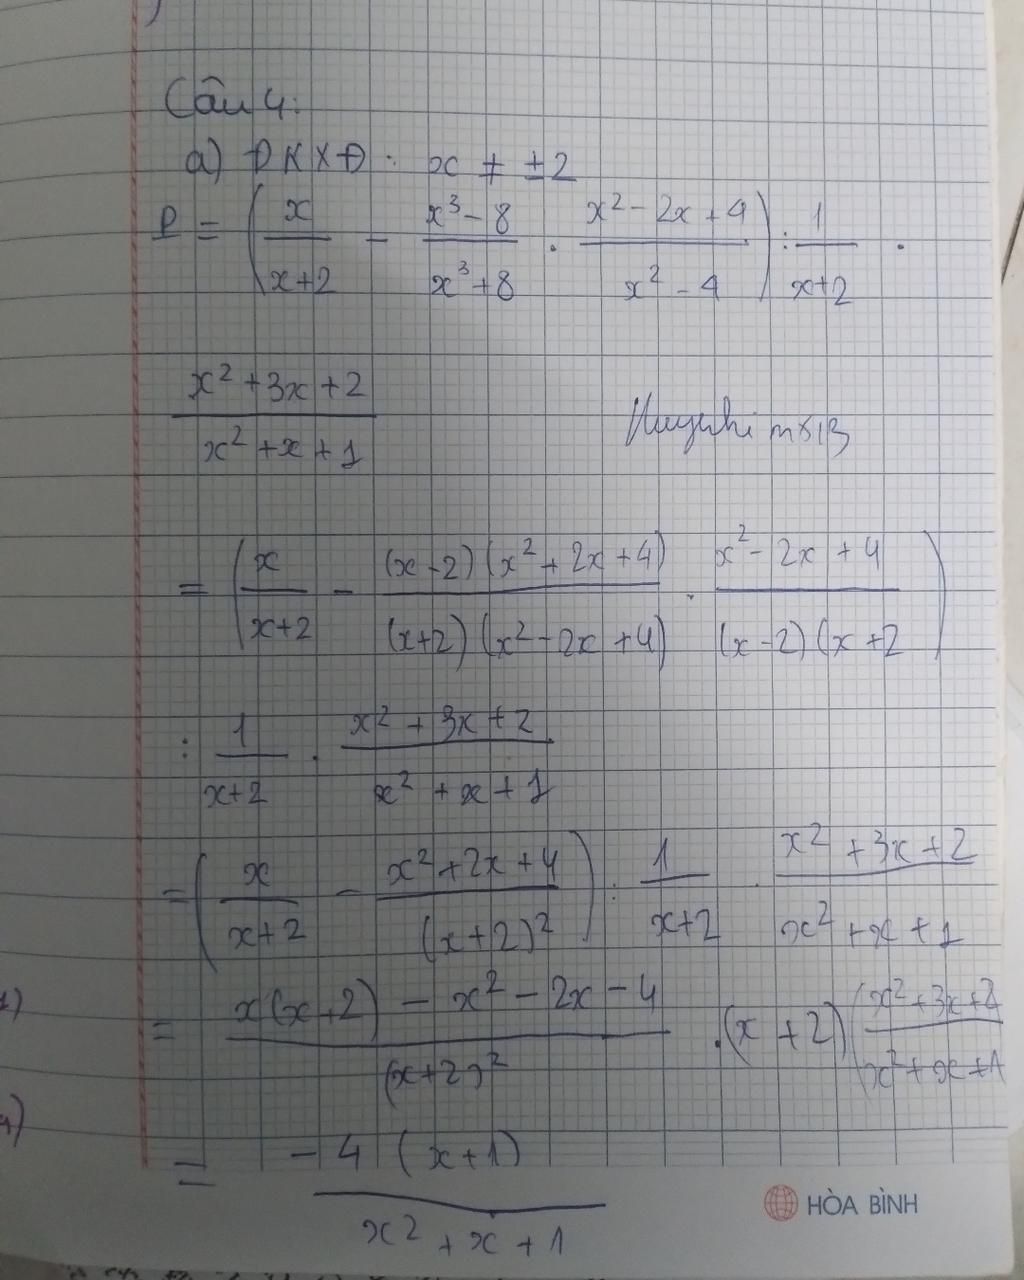 Câu 4:
a) ĐKXĐ: x ≠ ±2
P = (x/(x+2) - (x³-8)/(x³+8) . (x²-2x+4)/(x²-4)) : 1/(x+2) .
(x²+3x+2)/(x²+x+1)
= (x/(x+2) - (x-2)(x²+2x+4)/((x+2)(x²-2x+4)) . (x²-2x+4)/((x-2)(x+2))
: 1/(x+2) . (x²+3x+2)/(x²+x+1)
= (x/(x+2) - (x²+2x+4)/(x+2)²) : 1/(x+2) . (x²+3x+2)/(x²+x+1)
1)
= (x(x+2) - x² - 2x - 4)/(x+2)² . (x+2) (x²+3x+2)/(x²+x+1)
= -4(x+1)/(x²+x+1)
HÒA BÌNH